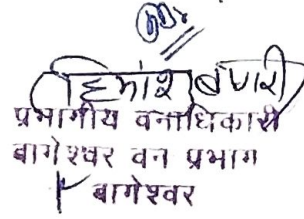 हिमांशु बागरी
प्रभागीय वनाधिकारी
बागेश्वर वन प्रभाग
बागेश्वर